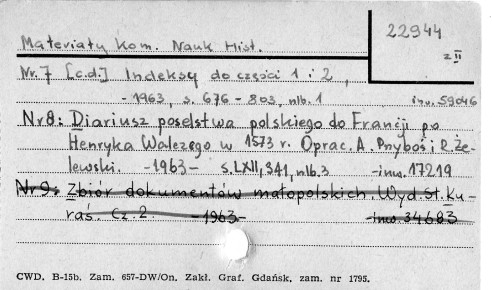 22944
z II
Materiały Kom. Nauk Hist.
Nr. 7 [c.d.] Indeksy do części 1 i 2,
-1963, s. 676-803, nlb. 1 inw. 59046
Nr 8: Diariusz poselstwa polskiego do Francji po
Henryka Walezego w 1573 r. Oprac. A. Przyboś i R. Że-
lewski. -1963- s. LXII, 341, nlb. 3 -inw. 17219
Nr 9: Zbiór dokumentów małopolskich. Wyd. St. Ku-
raś. Cz. 2. -1963- -inw. 34683
CWD. B-15b. Zam. 657-DW/On. Zakł. Graf. Gdańsk, zam. nr 1795.